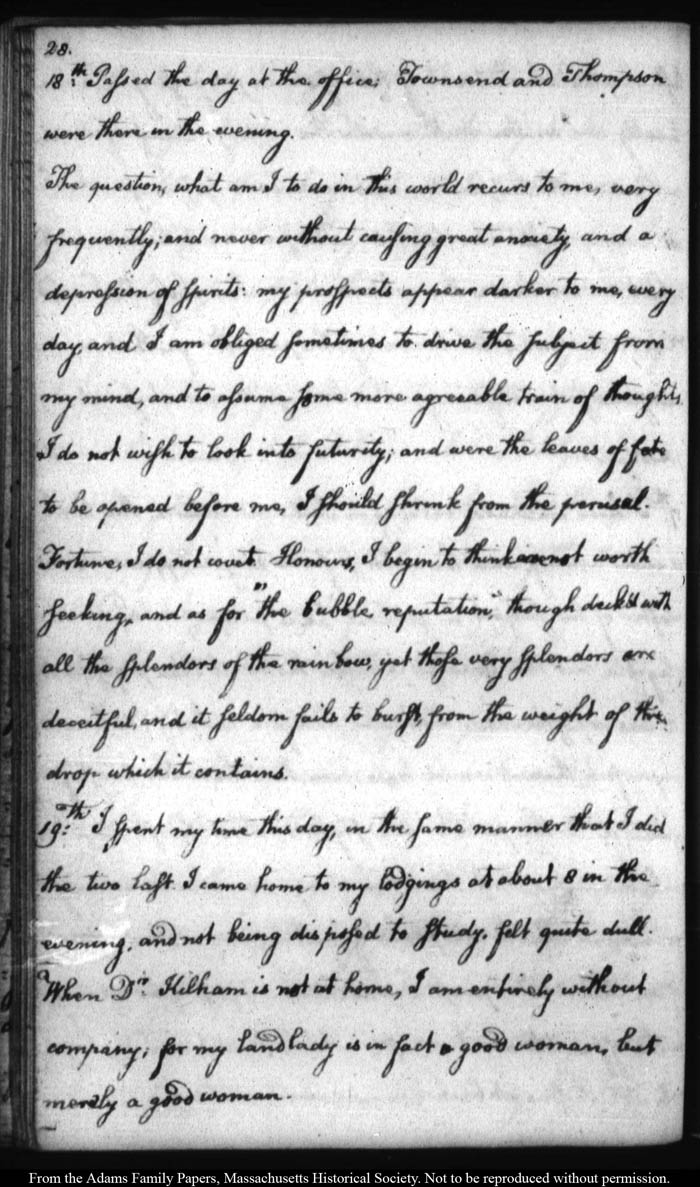 28.
18.th Passed the day at the office; Townsend and Thompson
were there in the evening.
The question, what am I to do in this world recurs to me, very
frequently; and never without causing great anxiety, and a
depression of spirits: my prospects appear darker to me, every
day, and I am obliged sometimes to drive the subject from
my mind, and to assume some more agreeable train of thoughts.
I do not wish to look into futurity; and were the leaves of fate
to be opened before me, I should shrink from the perusal.
Fortune, I do not covet. Honours, I begin to think are not worth
seeking, and as for "the bubble, reputation," though deck'd with
all the splendors of the rainbow, yet those very splendors are
deceitful, and it seldom fails to burst, from the weight of the
drop which it contains.
19.th I spent my time this day, in the same manner that I did
the two last. I came home to my lodgings at about 8 in the
evening, and not being disposed to study, felt quite dull.
When Dr. Kilham is not at home, I am entirely without
company; for my landlady is in fact a good woman, but
merely a good woman.
From the Adams Family Papers, Massachusetts Historical Society. Not to be reproduced without permission.